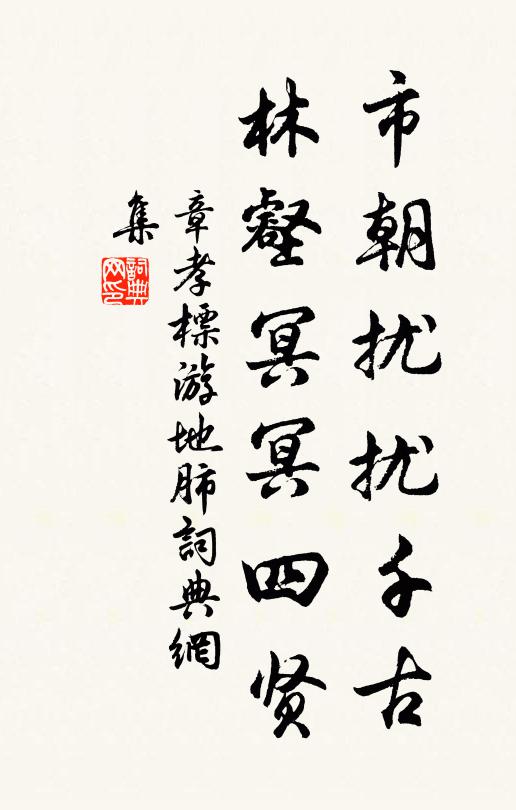 市朝扰扰千古
林壑冥冥四贤
章孝標游地肺詞典網
集
詞典
网印